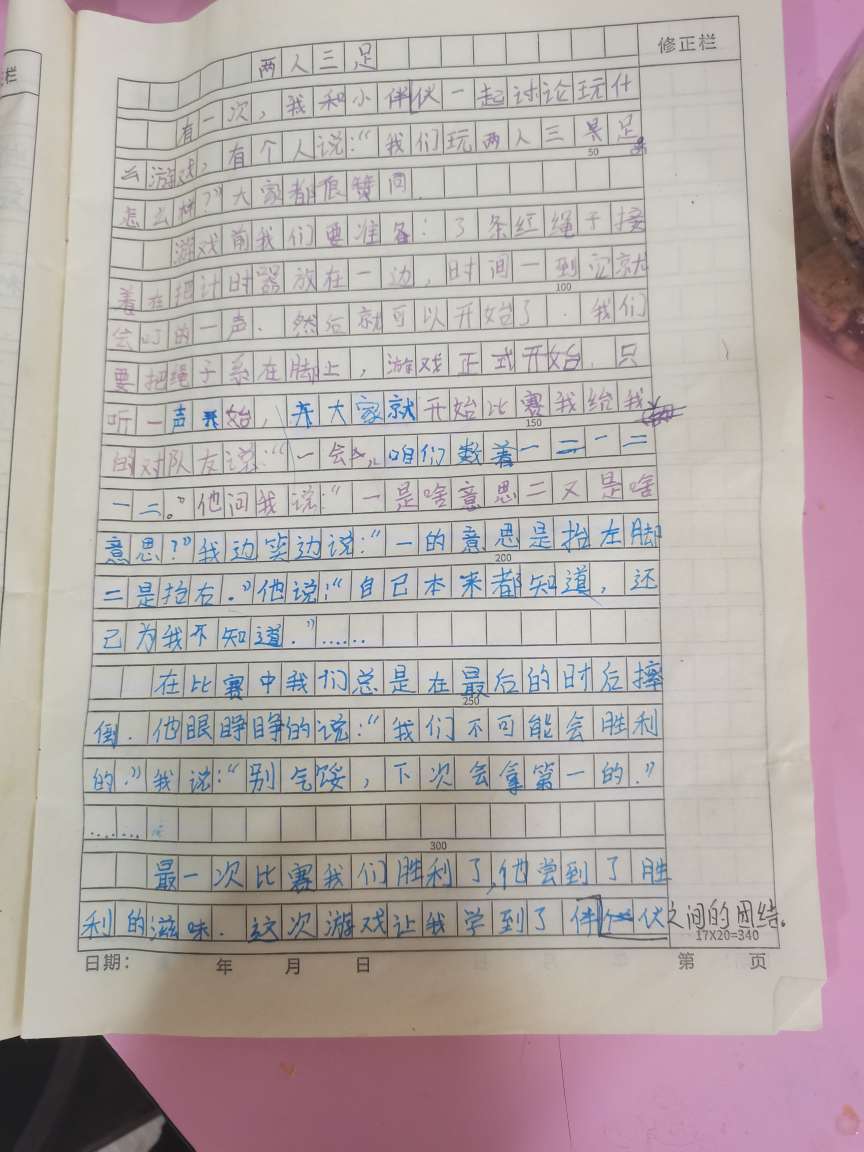 栏
修正栏
两人三足
有一次，我和小伴伙一起讨论玩什
么游戏，有个人说：“我们玩两人三足
50
怎么样？”大家都很赞同
游戏前我们要准备：了条红绳子接
着在把计时器放在一边，时间一到它就
100
会叮的一声．然后就可以开始了．我们
要把绳子系在脚上，游戏正式开始．只
听一声开始，大家就开始比赛我给我
150
的对队友说：“一会儿咱们数着一二一二
一二。”他问我说：“一是啥意思二又是啥
意思？”我边笑边说：“一的意思是抬左脚
200
二是抬右．”他说：“自己本来都知道，还
己为我不知道．”……
在比赛中我们总是在最后的时后摔
250
倒．他眼睁睁的说：“我们不可能会胜利
的．”我说：“别气馁，下次会拿第一的．”
……
300
最一次比赛我们胜利了，他尝到了胜
利的滋味．这次游戏让我学到了伴伙之间的团结。
17X20=340
日期： 年 月 日 第 页